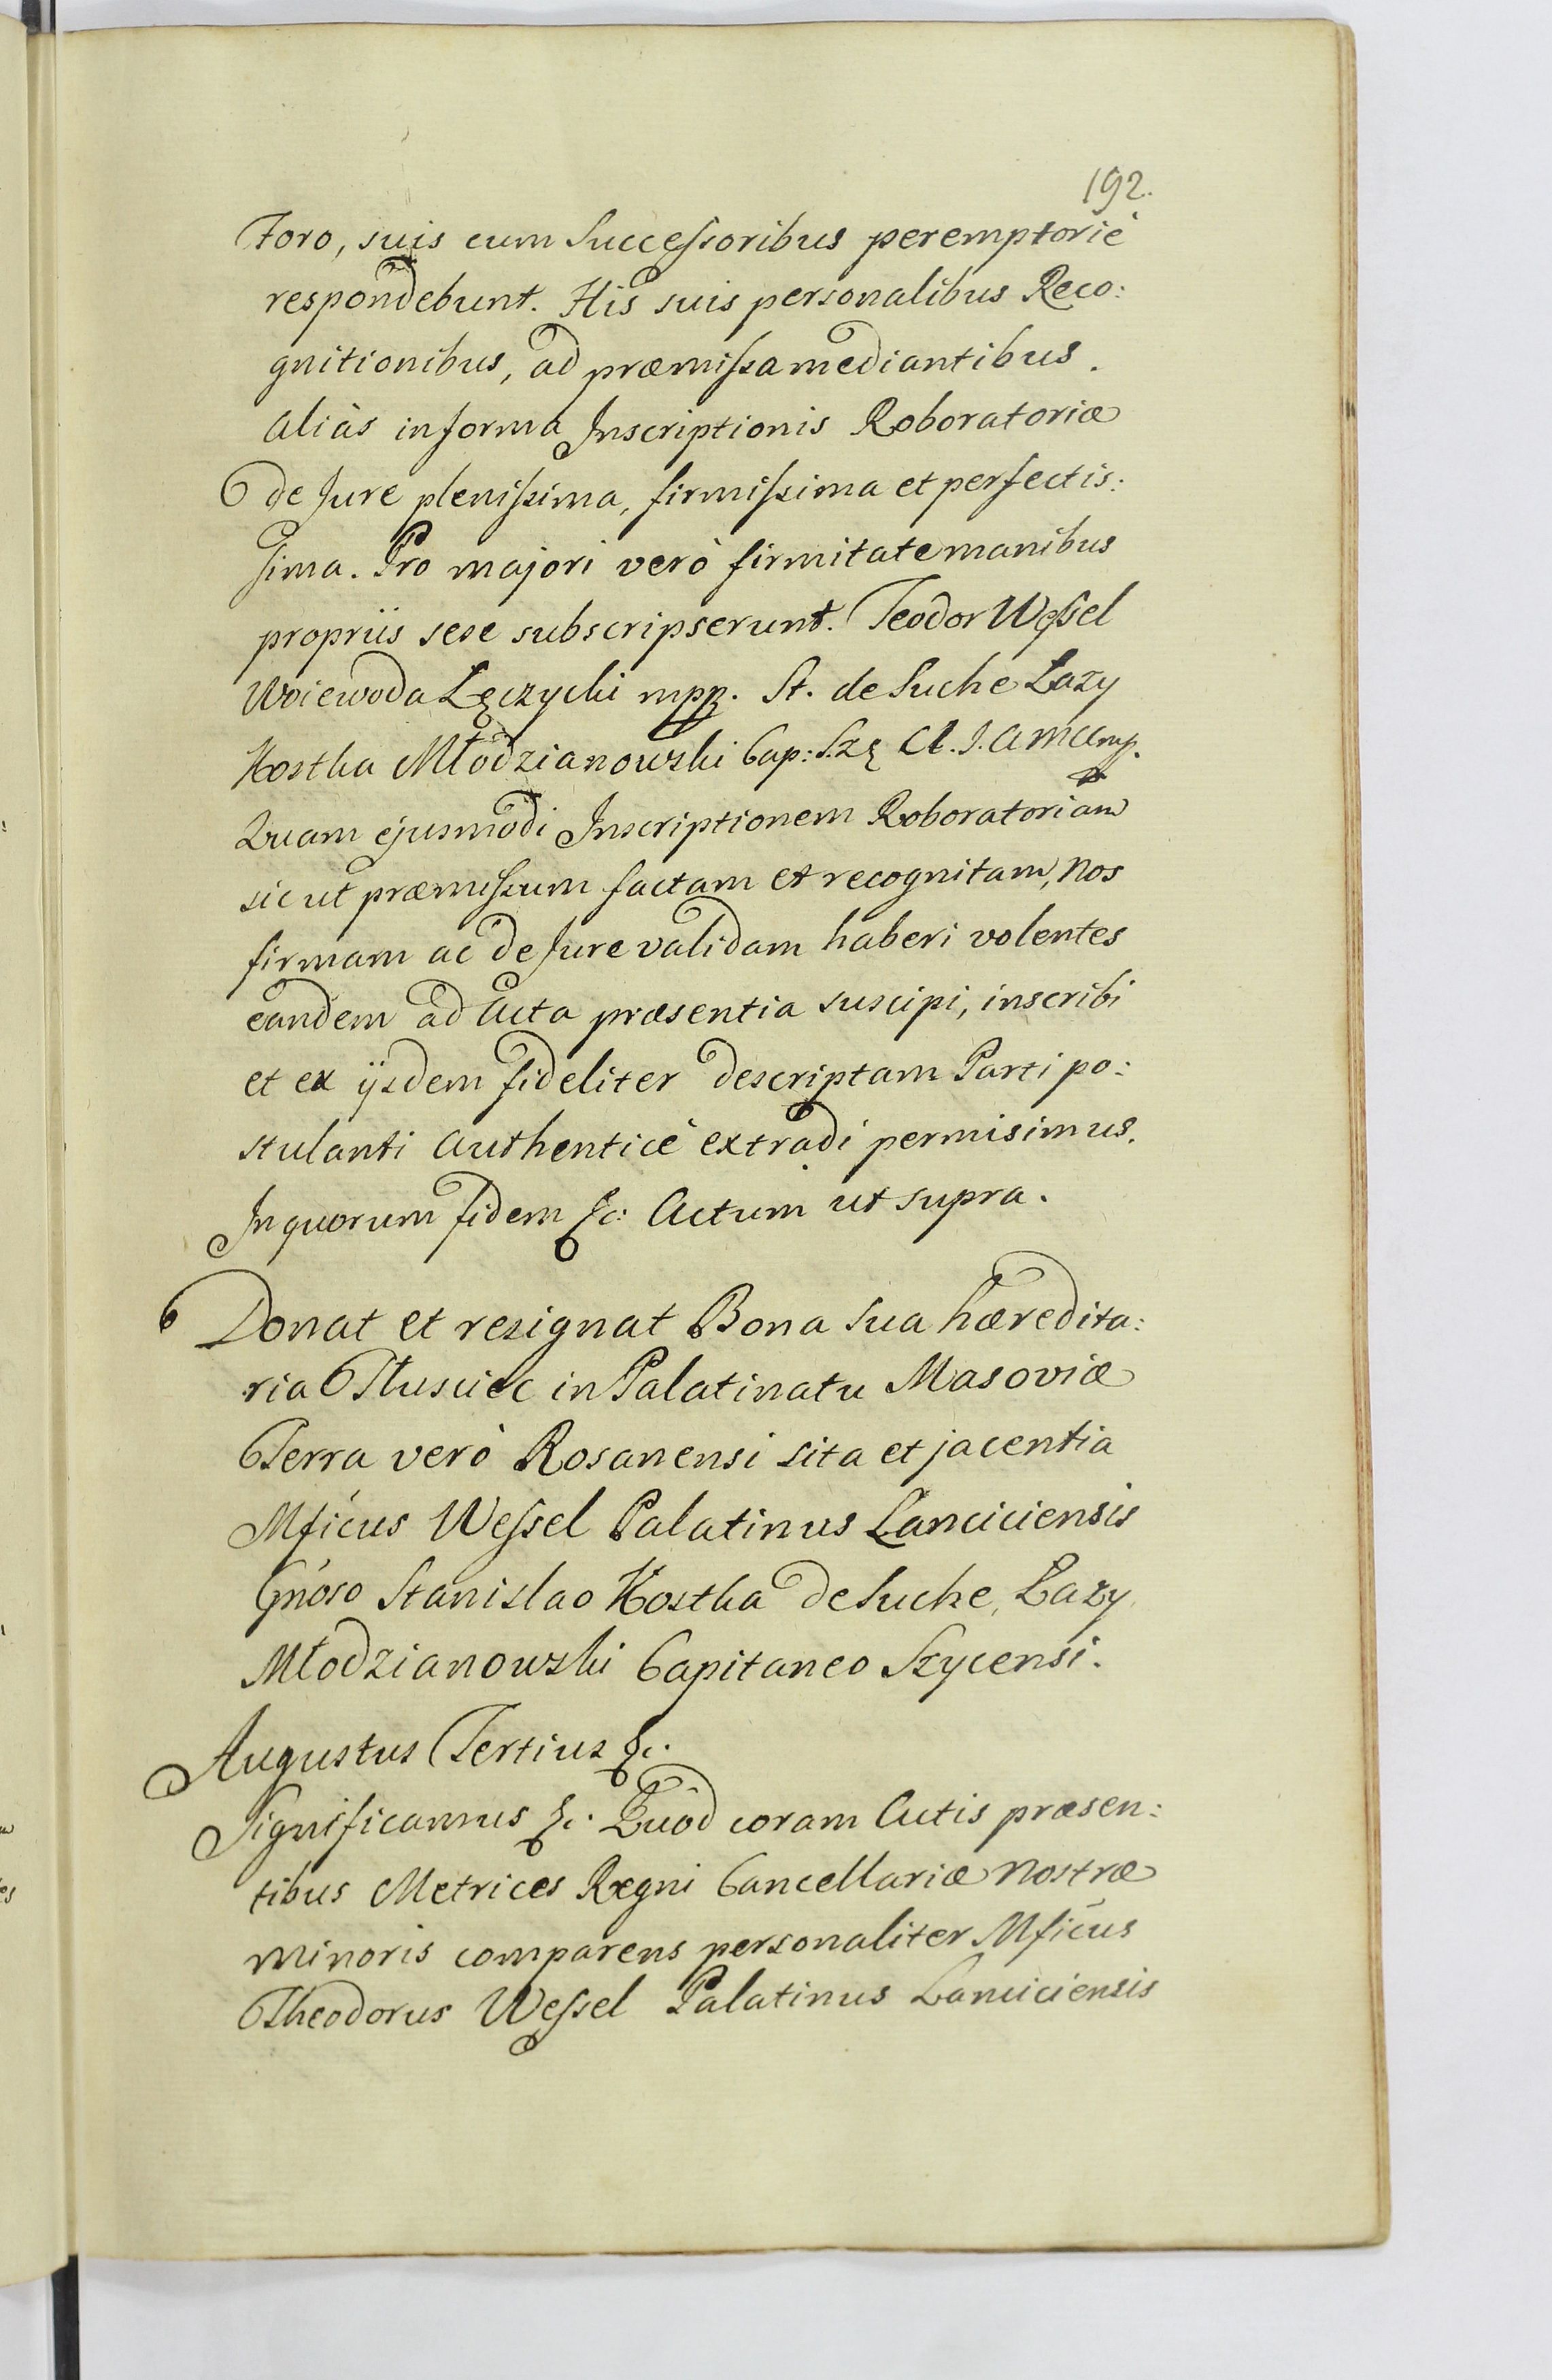 192.
Foro, suis cum Successoribus peremptoriè
respondebunt. His suis personalibus Reco:
gnitionibus, ad præmissa mediantibus.
aliàs in forma Inscriptionis Roboratoriæ
de Jure plenissima, firmissima et perfectis:
sima. Pro majori verò firmitate manibus
propriis sese subscripserunt. Teodor Wessel
Woiewoda Lęczycki mpp. St. de Suche Łazy
Kostka Młodzianowski Cap:
Quam ejusmodi Inscriptionem Roboratoriam
sic ut præmissum factam et recognitam, nos
firmam ac de Jure validam haberi volentes
eandem ad Acta præsentia suscipi, inscribi
et ex ijsdem fideliter descriptam Parti po:
stulanti authenticè extradi permisimus.
In quorum fidem &c: Actum ut supra.
Donat et resignat Bona sua hæredita:
ria Tłusciec in Palatinatu Masoviæ
Terra verò Rosanensi sita et jacentia
Mficus Wessel Palatinus Lanciciensis
Gnoso Stanislao Kostka de Suche, Łazy
Młodzianowski Capitaneo Szycensi.
Augustus Tertius &c.
Significamus &c. Quod coram Actis præsen:
tibus Metrices Regni Cancellariæ nostræ
minoris comparens personaliter Mficus
Theodorus Wessel Palatinus Lanciciensis